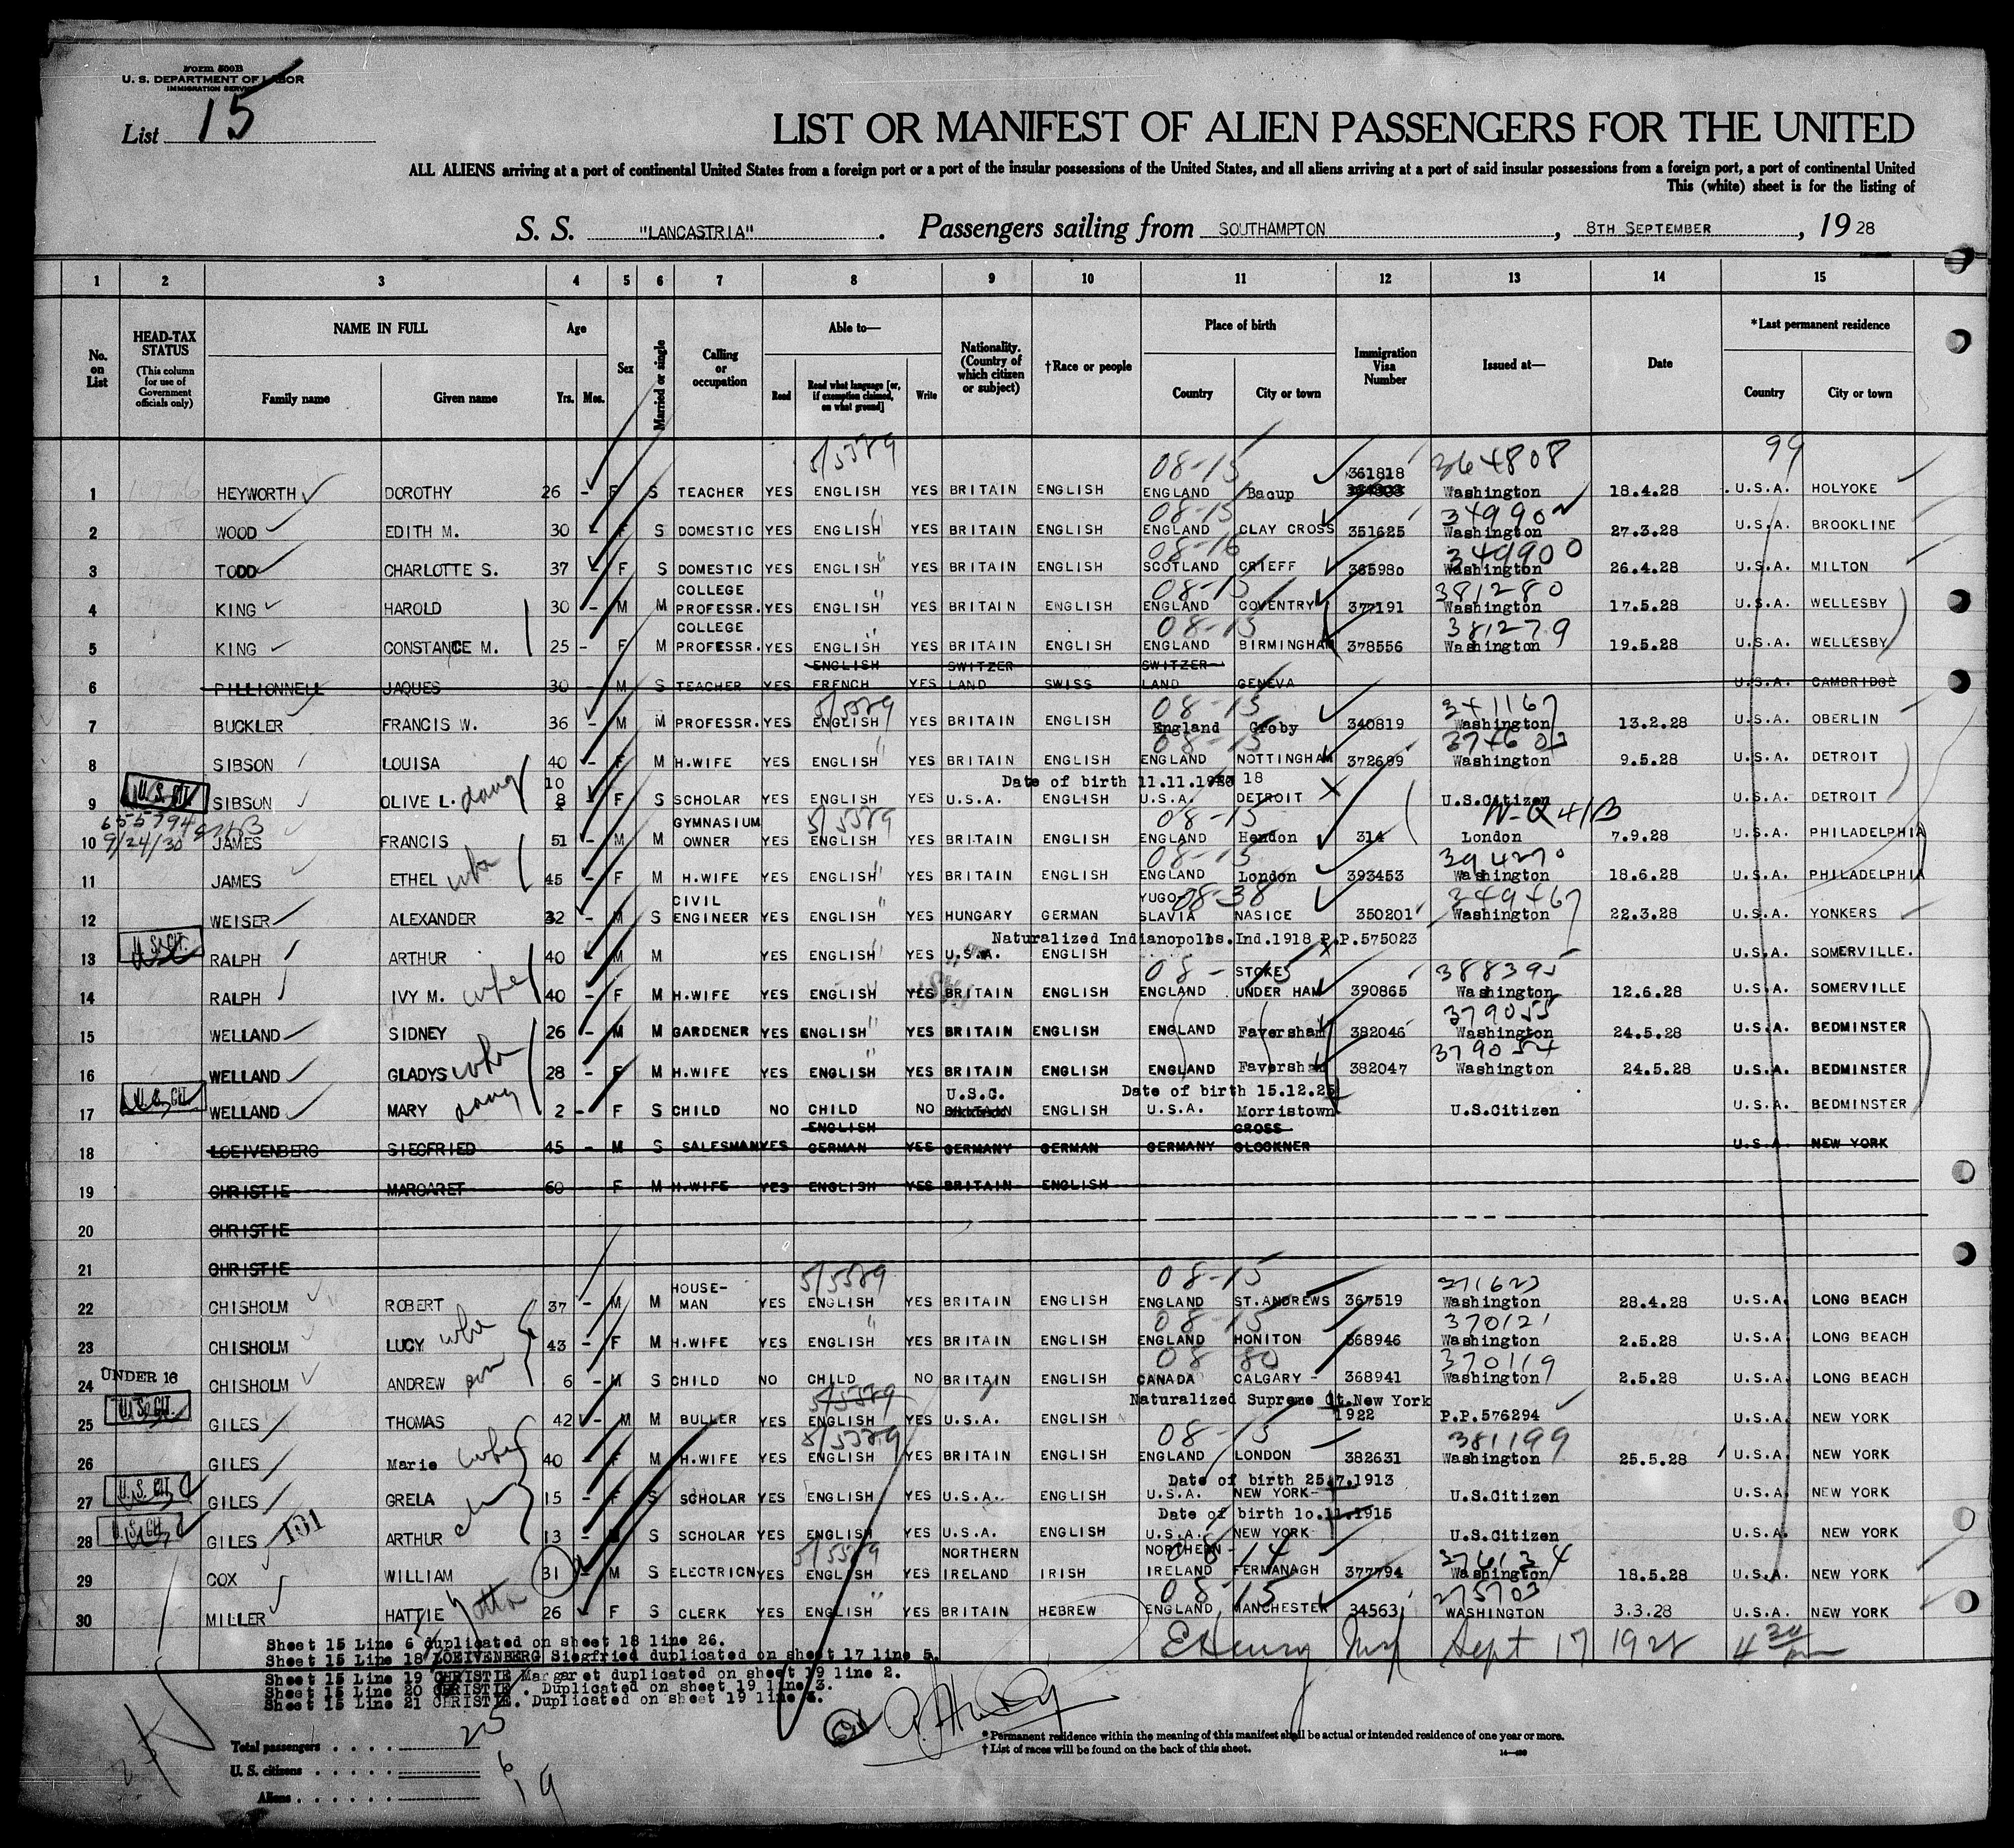 Form 500B
U. S. DEPARTMENT OF LABOR
IMMIGRATION SERVICE
List 15
LIST OR MANIFEST OF ALIEN PASSENGERS FOR THE UNITED
ALL ALIENS arriving at a port of continental United States from a foreign port or a port of the insular possessions of the United States, and all aliens arriving at a port of said insular possessions from a foreign port, a port of continental United
This (white) sheet is for the listing of
S. S. "LANCASTRIA". Passengers sailing from SOUTHAMPTON, 8TH SEPTEMBER, 19 28
1 2 3 4 5 6 7 8 9 10 11 12 13 14 15
No. on List HEAD-TAX STATUS (This column for use of Government officials only) NAME IN FULL Family name Given name Age Yrs. Mos. Sex Married or single Calling or occupation Able to— Read Read what language [or, if exemption claimed, on what ground] Write Nationality. (Country of which citizen or subject) †Race or people Place of birth Country City or town Immigration Visa Number Issued at— Date *Last permanent residence Country City or town
5/5389 08-15 361818 364808 99
1 HEYWORTH DOROTHY 26 - F S TEACHER YES ENGLISH YES BRITAIN ENGLISH ENGLAND Bacup Washington 18.4.28 U.S.A. HOLYOKE
08-15 34990
2 WOOD EDITH M. 30 - F S DOMESTIC YES ENGLISH " YES BRITAIN ENGLISH ENGLAND CLAY CROSS 351625 Washington 27.3.28 U.S.A. BROOKLINE
08-16 349900
3 TODD CHARLOTTE S. 37 - F S DOMESTIC YES ENGLISH " YES BRITAIN ENGLISH SCOTLAND CRIEFF 365980 Washington 26.4.28 U.S.A. MILTON
COLLEGE 08-15 381280
4 KING HAROLD 30 - M M PROFESSR. YES ENGLISH " YES BRITAIN ENGLISH ENGLAND COVENTRY 377191 Washington 17.5.28 U.S.A. WELLESBY
COLLEGE 08-15 381279
5 KING CONSTANCE M. 25 - F M PROFESSR. YES ENGLISH " YES BRITAIN ENGLISH ENGLAND BIRMINGHAM 378556 Washington 19.5.28 U.S.A. WELLESBY
ENGLISH SWITZER SWITZER-
6 PILLIONNELL JAQUES 30 - M S TEACHER YES FRENCH YES LAND SWISS LAND GENEVA U.S.A. CAMBRIDGE
5/5389 08-15 341167
7 BUCKLER FRANCIS W. 36 - M M PROFESSR. YES ENGLISH YES BRITAIN ENGLISH England Groby 340819 Washington 13.2.28 U.S.A. OBERLIN
08-15 374603
8 SIBSON LOUISA 40 - F M H.WIFE YES ENGLISH " YES BRITAIN ENGLISH ENGLAND NOTTINGHAM 372699 Washington 9.5.28 U.S.A. DETROIT
10 Date of birth 11.11. 18
9 U.S. CIT. SIBSON OLIVE L. daug - F S SCHOLAR YES ENGLISH YES U.S.A. ENGLISH U.S.A. DETROIT X U.S.Citizen U.S.A. DETROIT
655794 GYMNASIUM 5/5389 08-15
10 9/24/30 JAMES FRANCIS 51 - M M OWNER YES ENGLISH YES BRITAIN ENGLISH ENGLAND Hendon 314 London 7.9.28 U.S.A. PHILADELPHIA
08-15 394270
11 JAMES ETHEL wife 45 - F M H.WIFE YES ENGLISH " YES BRITAIN ENGLISH ENGLAND London 393453 Washington 18.6.28 U.S.A. PHILADELPHIA
CIVIL YUGO 08-38 349467
12 WEISER ALEXANDER 32 - M S ENGINEER YES ENGLISH " YES HUNGARY GERMAN SLAVIA NASICE 350201 Washington 22.3.28 U.S.A. YONKERS
Naturalized Indianopolis.Ind.1918 P.P.575023
13 U.S. CIT. RALPH ARTHUR 40 - M M YES ENGLISH " YES U.S.A. ENGLISH U.S.A. SOMERVILLE.
08- STOKE 388395
14 RALPH IVY M. wife 40 - F M H.WIFE YES ENGLISH " YES BRITAIN ENGLISH ENGLAND UNDER HAM 390865 Washington 12.6.28 U.S.A. SOMERVILLE
379055
15 WELLAND SIDNEY 26 - M M GARDENER YES ENGLISH " YES BRITAIN ENGLISH ENGLAND Faversham 382046 Washington 24.5.28 U.S.A. BEDMINSTER
379054
16 WELLAND GLADYS wife 28 - F M H.WIFE YES ENGLISH " YES BRITAIN ENGLISH ENGLAND Faversham 382047 Washington 24.5.28 U.S.A. BEDMINSTER
U.S.C. Date of birth 15.12.25
17 U.S. CIT. WELLAND MARY daug 2 - F S CHILD NO CHILD NO BRITAIN ENGLISH U.S.A. Morristown U.S.Citizen U.S.A. BEDMINSTER
ENGLISH GROSS
18 LOEIVENBERG SIEGFRIED 45 - M S SALESMAN YES GERMAN YES GERMANY GERMAN GERMANY GLOCKNER U.S.A. NEW YORK
19 CHRISTIE MARGARET 60 - F M H.WIFE YES ENGLISH YES BRITAIN ENGLISH
20 CHRISTIE
21 CHRISTIE
HOUSE- 5/5389 08-15 371623
22 CHISHOLM ROBERT 37 - M M MAN YES ENGLISH YES BRITAIN ENGLISH ENGLAND ST.ANDREWS 367519 Washington 28.4.28 U.S.A. LONG BEACH
08-15 370121
23 CHISHOLM LUCY wife 43 - F M H.WIFE YES ENGLISH " YES BRITAIN ENGLISH ENGLAND HONITON 368946 Washington 2.5.28 U.S.A. LONG BEACH
UNDER 16 08 80 370119
24 CHISHOLM ANDREW son 6 - M S CHILD NO CHILD NO BRITAIN ENGLISH CANADA CALGARY - 368941 Washington 2.5.28 U.S.A. LONG BEACH
5/5389 Naturalized Supreme Ct.New York
25 U.S. CIT. GILES THOMAS 42 - M M BULLER YES ENGLISH YES U.S.A. ENGLISH 1922 P.P.576294 U.S.A. NEW YORK
5/5389 08-15 381199
26 GILES Marie wife 40 - F M H.WIFE YES ENGLISH YES BRITAIN ENGLISH ENGLAND LONDON 382631 Washington 25.5.28 U.S.A. NEW YORK
Date of birth 25.7.1913
27 U.S. CIT. GILES GRELA 15 - F S SCHOLAR YES ENGLISH YES U.S.A. ENGLISH U.S.A. NEW YORK- U.S.Citizen U.S.A. NEW YORK
Date of birth 10.11.1915
28 U.S. CIT. GILES 101 ARTHUR ch 13 - S SCHOLAR YES ENGLISH YES U.S.A. ENGLISH U.S.A. NEW YORK- U.S.Citizen U.S.A. NEW YORK
5/5389 NORTHERN NORTHERN 08-14 376134
29 COX WILLIAM 31 - M S ELECTRICN YES ENGLISH YES IRELAND IRISH IRELAND FERMANAGH 377794 Washington 18.5.28 U.S.A. NEW YORK
08-15 275703
30 MILLER HATTIE 26 F S CLERK YES ENGLISH " YES BRITAIN HEBREW ENGLAND MANCHESTER 34563 WASHINGTON 3.3.28 U.S.A. NEW YORK
Sept 17 1928 4 30 pm
Sheet 15 Line 6 duplicated on sheet 18 line 26.
Sheet 15 Line 18 LOEIVENBERG Siegfried duplicated on sheet 17 line 5.
Sheet 15 Line 19 CHRISTIE Margaret duplicated on sheet 19 line 2.
Sheet 15 Line 20 CHRISTIE . Duplicated on sheet 19 line 3.
Sheet 15 Line 21 CHRISTIE. Duplicated on sheet 19 line
Total passengers . . . . 25
U. S. citizens . . . . . 6
Aliens . . . . . . 19
* Permanent residence within the meaning of this manifest shall be actual or intended residence of one year or more.
† List of races will be found on the back of this sheet.